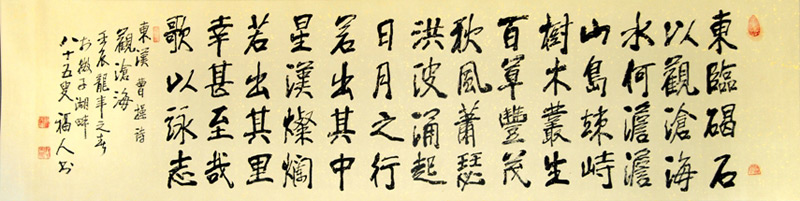 東臨碣石
以觀滄海
水何澹澹
山島竦峙
樹木叢生
百草豐茂
秋風蕭瑟
洪波涌起
日月之行
若出其中
星漢燦爛
若出其里
幸甚至哉
歌以詠志
東漢 曹操詩
觀滄海
壬辰龍年之春
於微子湖畔
八十五叟 福人書